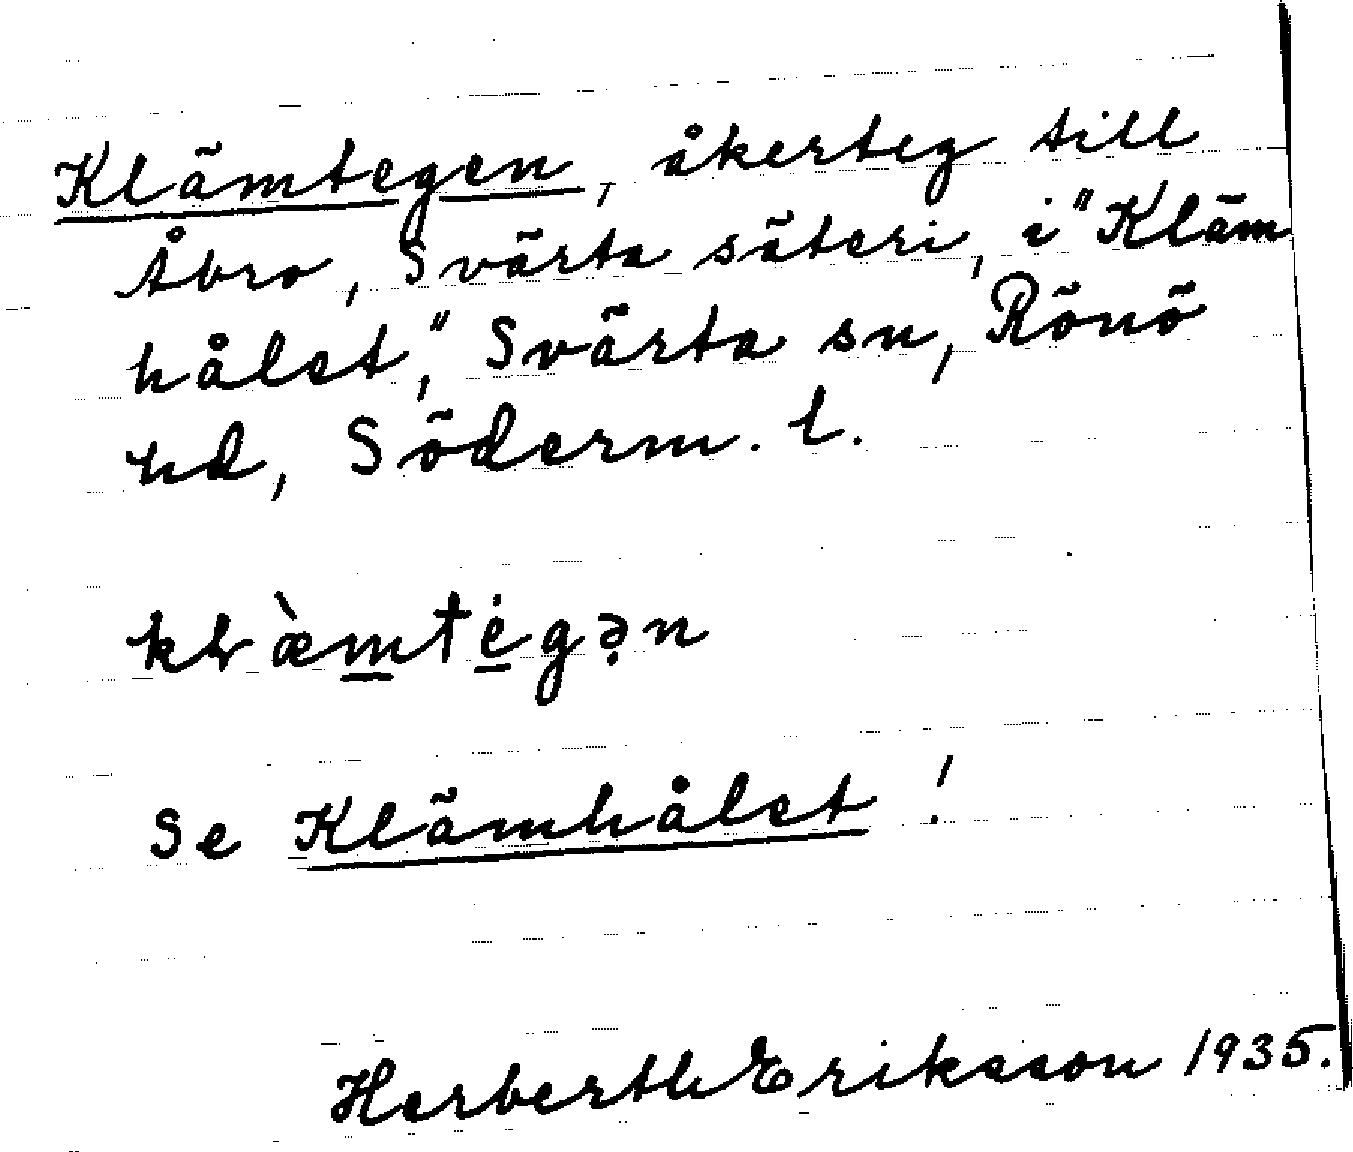 Klämtegen, åkerteg till
Åbro, Svärta säteri, i "Kläm
hålet", Svärta sn, Rönö
hd, Söderm. l.
klæ̀mtégə̣n
Se Klämhålet!
Herberth Eriksson 1935.